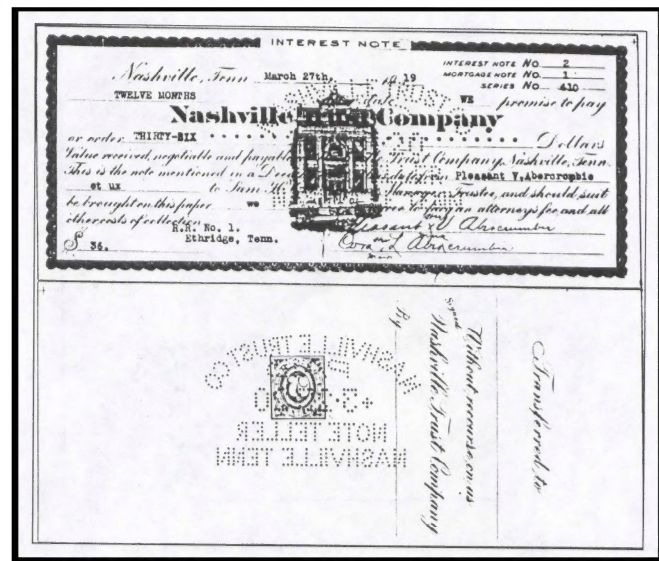 INTEREST NOTE
INTEREST NOTE No. 2
MORTGAGE NOTE No. 1
SERIES No. 410
Nashville, Tenn March 27th, 19
TWELVE MONTHS date WE promise to pay
Nashville Trust Company
or order THIRTY-SIX Dollars
Value received, negotiable and payable Trust Company, Nashville, Tenn.
This is the note mentioned in a Deed Pleasant V. Abercrombie
et ux to Sam H. Trustee, and should suit
be brought on this paper we agree to pay an attorneys fee and all
other costs of collection
R.R. No. 1.
Ethridge, Tenn.
$ 36.
Pleasant Abercrombie
Cora L Abercrombie
NASHVILLE TRUST CO
NOTE TELLER
NASHVILLE TENN
By
Signed
Nashville Trust Company
Without recourse on us
Transferred to